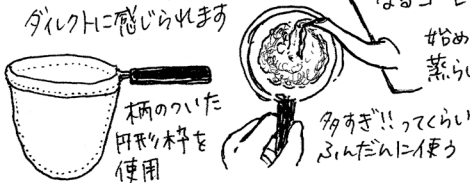 ダイレクトに感じられます
柄のついた
円形枠を
使用
なるコーヒ
始め
蒸ら
多すぎ!!ってくらい
ふんだんに使う